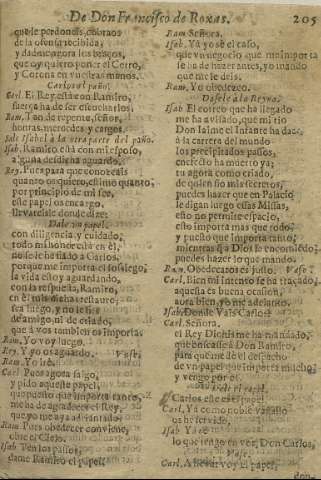 De Don Francisco de Roxas. 205
que le perdoneis, cobraos
de la ofensa recibida,
y dadme agora los braços,
que oy quiero poner el Cetro,
y Corona en vuestras manos.
Carlos al paño.
Carl. El Rey està con Ramiro,
fuerça ha de ser escucharlos,
Ram. Tan de repente, señor,
honras, mercedes, y cargos.
Sale Isabel à la otra parte del paño.
Isab. Ramiro està con mi esposo,
alguna desdicha aguardo.
Rey. Pues para que conozcais
quanto os quiero, estimo quanto,
por principio de mi fee,
este papel os encargo,
llevaràsle donde dize:
Dale un papel.
con diligencia, y cuidado,
todo mi honor està en èl,
no se le ha dado a Carlos,
porque me importa el sossiego,
la vida estoy aguardando,
con la respuesta, Ramiro,
en èl mi dicha restauro,
sea luego, y no le fie
de amigo, ni de criado,
que à vos tambien os importa.
Ram. Yo voy luego.
Rey. Y yo os aguardo. Vase.
Ram. Yo irè.
Carl. Pues agora salgo,
y pido aqueste papel,
que puesto que importa tanto,
me ha de agradecer el Rey,
que yo me aya adelantado.
Ram. Pues obedecer conviene,
obre el Cielo.
Isab. Ten los passos,
dame Ramiro el papel.
Ram. Señora.
Isab. Ya yo sè el caso,
que un negocio que me importa
se ha de hazer antes, yo mando
que me le deis.
Ram. Yo obedezco.
Dasele à la Reyna.
Isab. El correo que ha llegado
me ha avisado, que mi tio
Don Iaime el Infante ha dado
à la carrera del mundo
los precipitados passos,
en efecto ha muerto ya;
tu agora como criado,
de quien fio mis secretos,
puedes hazer que en Palacio
le digan luego essas Missas,
esto no permite espacio,
esto importa mas que todo,
y puesto que importa tanto,
mientras yo à Dios le encomiendo,
puedes hazer lo que mando.
Ram. Obedezcaros es justo. Vase.
Carl. Bien mi intento se ha traçado,
aquesta es buena ocasion,
aora bien, yo me adelanto.
Isab. Donde vais Carlos?
Carl. Señora,
el Rey Dionis me ha mandado,
que encarge à Don Ramiro,
para que me dè el despacho
de un papel que importa mucho,
y vengo por el.
Isab. Carlos esse es el papel.
Carl. Ya como noble vasallo
os he servido.
Isab. Y are
lo que tengo en ver, Don Carlos,
Vase.
Carl. A llevar voy el papel,